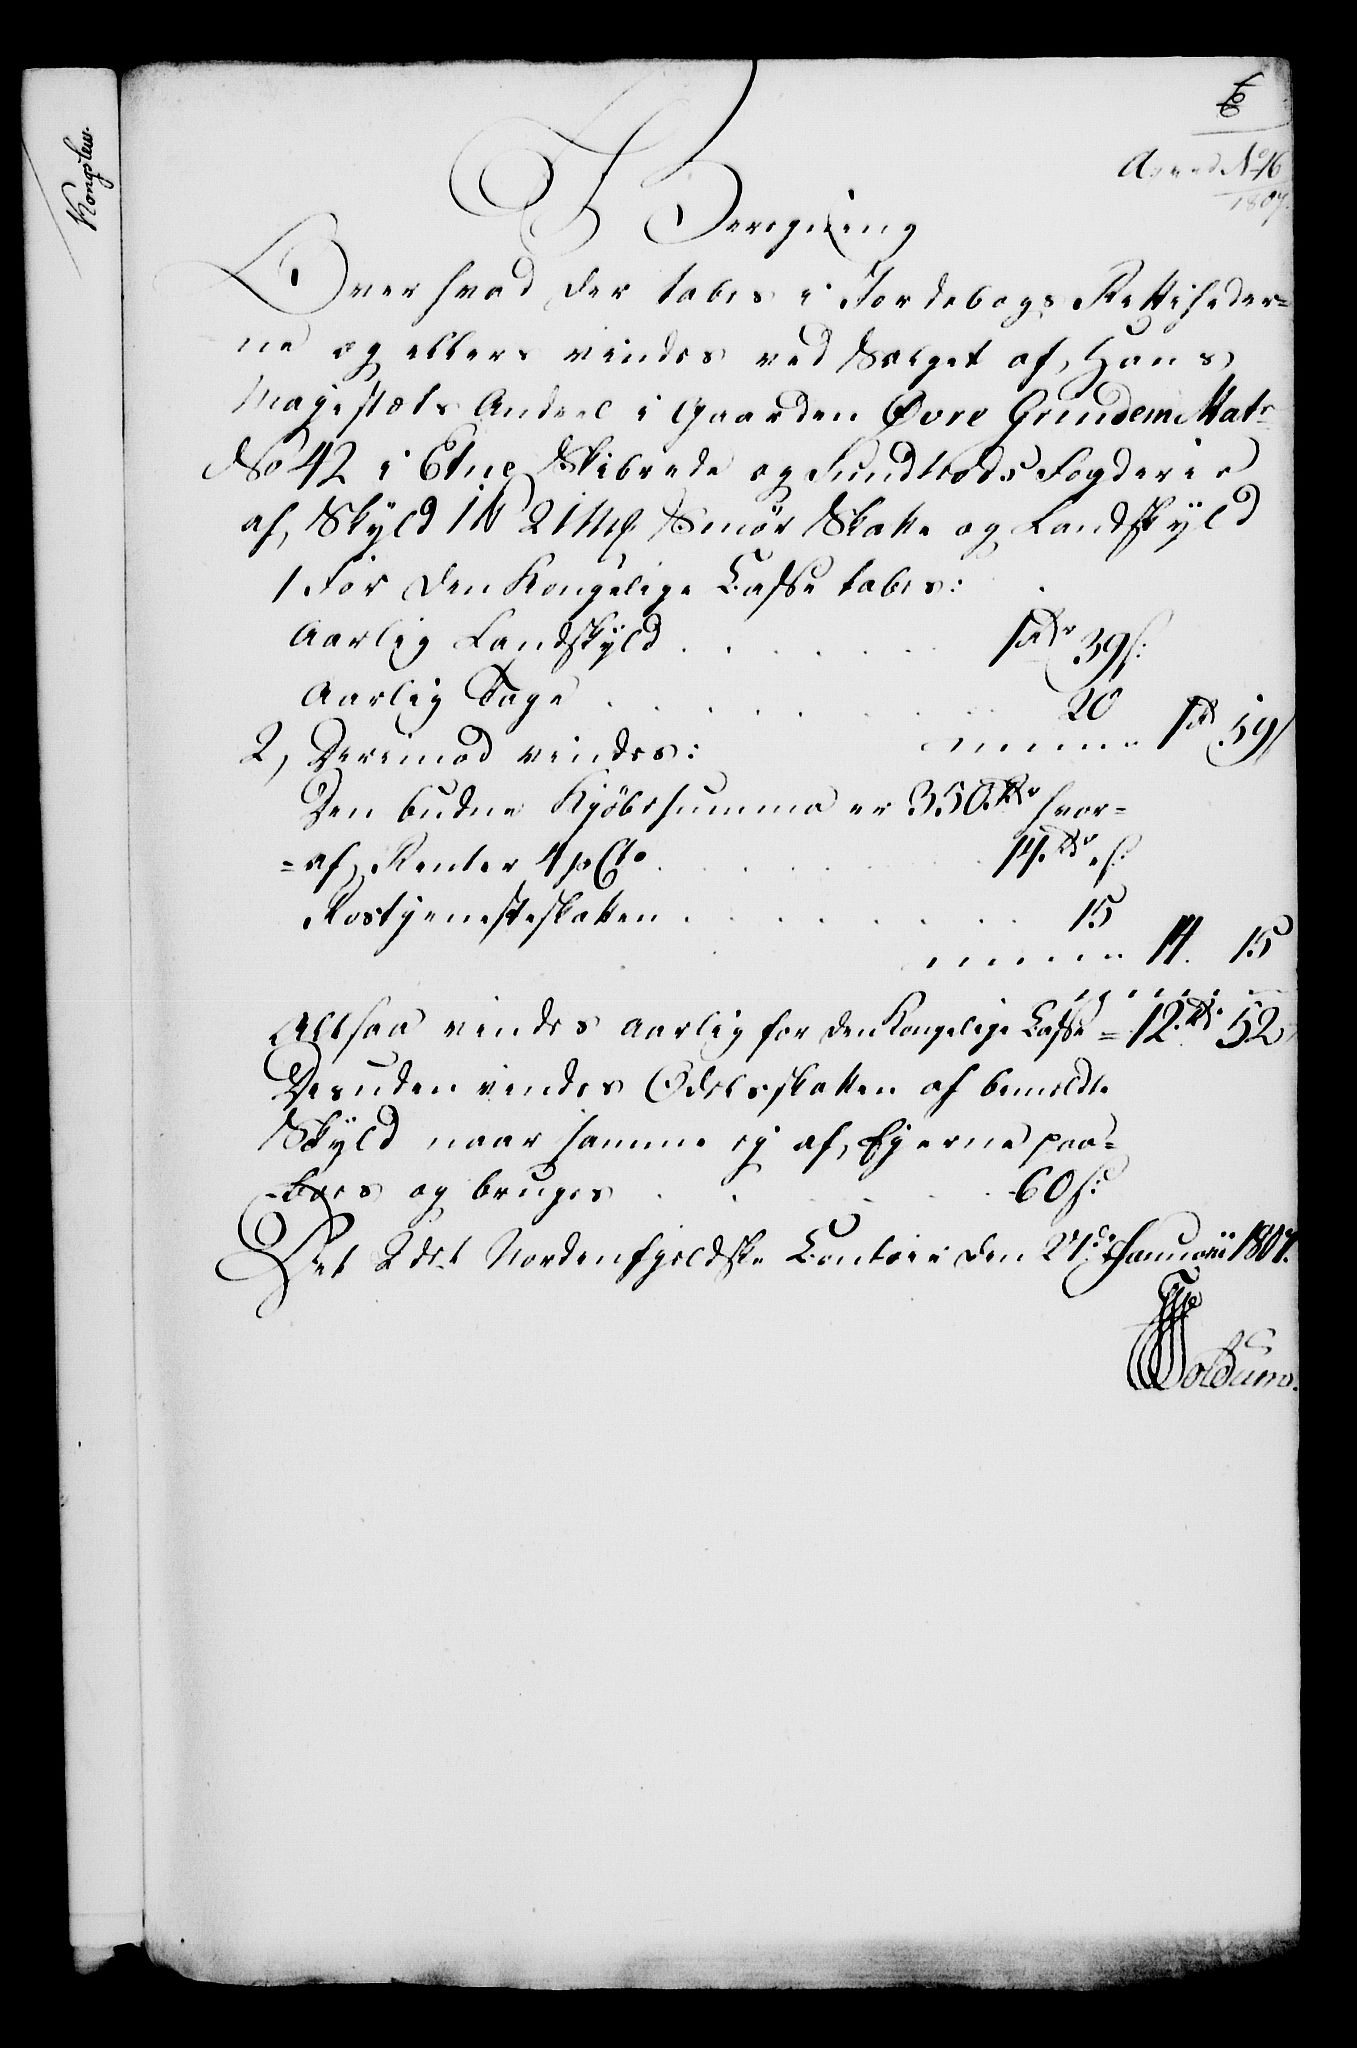 Kongslew.
6
No 16
1807.
Beregning
Over hvad der tabes i Jordebogs Rettigheder=
ne og ellers vindes ved Salget af Hans
Majestæts Andeel i Gaarden Øvre Grindem Matr=
No 42 i Etne Skibrede og Sundhords Fogderie
af Skyld 1 21 Mk Smør Skatte og Landskyld
1 For den Kongelige Casse tabes:
Aarlig Landskyld . . . . . . 1 rdr 39 s:
Aarlig Tage . . . . . . . 20
1 rd 59 s
2, Derimod vindes:
Den budne Kjøbesumma er 350 rdr hvor=
=af Renter 4 p Cto . . . . . . 14 rdr " s:
Rostjenesteskatten . . . . . . . 15
14. 15
Altsaa vindes aarlig for den Kongelige Casse = 12 rdr 52
Desuden vindes Odelsskatten af bemeldte
Skyld naar samme ej af Ejerne paa=
=boes og bruges . . . . . 60 s:
Det 2det Nordenfjeldske Contoir den 24de Januarii 1807.